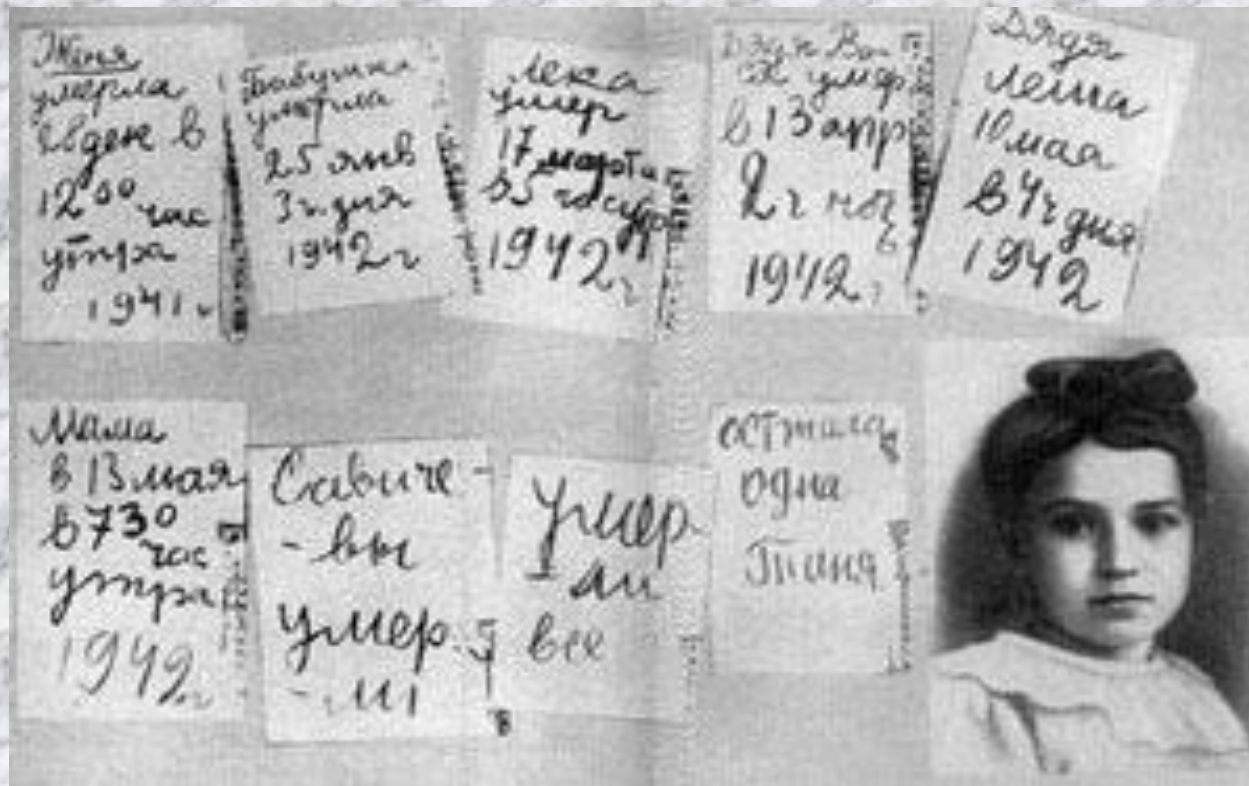 Женя
умерла
28 дек в
12 00 час
утра
1941 г
Бабушка
умерла
25 янв
3 ч. дня
1942 г
Лека
умер
17 марта
в 5 час утр
1942 г
Дядя Ва
ся умер
в 13 апр
2 ч ноч
1942 г
Дядя
Леша
10 мая
в 4 ч дня
1942
Мама
в 13 мая
в 7 30
час
утра
1942 г
Савиче-
-вы
умер-
-ли
Умер-
-ли
все
осталась
одна
Таня